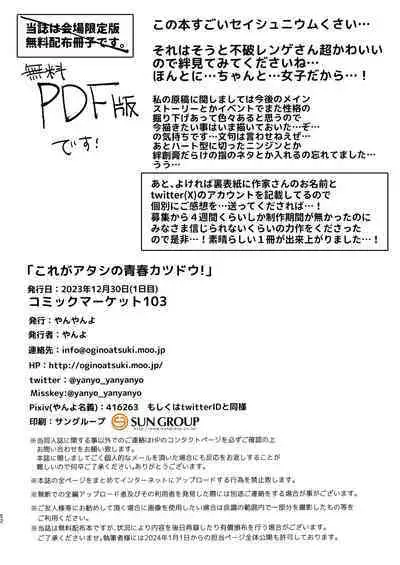 当誌は会場限定版
無料配布冊子です。
無料
PDF版
です!
この本すごいセイシュニウムくさい…
それはそうと不破レンゲさん超かわいい
ので絆見てみてくださいね…
ほんとに…ちゃんと…女子だから…！
私の原稿に関しましては今後のメイン
ストーリーとかイベントでまた性格の
掘り下げあって色々あると思うので
今描きたい事はいま描いておいた…ぞ…
の気持ちです…文句は言わせねえぜ…
あとハート型に切ったニンジンとか
絆創膏だらけの指のネタとか入れるの忘れてました…
うう…
あと、よければ裏表紙に作家さんのお名前と
twitter(X)のアカウントを記載してるので
個別にご感想を…送ってくだされば…！
募集から４週間くらいしか制作期間が無かったのに
みなさま信じられないくらいの力作をくださった
ので是非…！素晴らしい１冊が出来上がりました…！
「これがアタシの青春カツドウ!」
発行日：2023年12月30日(1日目)
コミックマーケット103
発行：やんやんよ
発行者：やんよ
連絡先：info@oginoatsuki.moo.jp
HP：http://oginoatsuki.moo.jp/
twitter：@yanyo_yanyanyo
Misskey:@yanyo_yanyanyo
Pixiv(やんよ名義)：416263　もしくはtwitterIDと同様
印刷：サングループ SUN GROUP
※当同人誌に関する事以外でのご連絡はHPのコンタクトページを必ずご確認の上
お問い合わせをお願い致します。
本誌に関しましてごく個人的なメールを頂いた場合にも反応をお返しすることが
難しいので何卒ご了承ください。ありがとうございます。
※本誌の全ページをまとめてインターネットにアップロードする行為を禁止致します。
※無断での全編アップロード者及びその利用者を発見した際には別途ご連絡をする場合が事がございます。
※ご友人様等にお勧めして頂く場合に画像を使用したい場合は良識の範囲内で一部分を撮影したもの等を
ご利用ください。
※当誌は無料配布本ですが、状況により内容を後日再録したり有償頒布を行う場合がございます。
ご了承くださいませ。執筆者様は2024年1月1日からの担当ページ全体公開も許可しております。